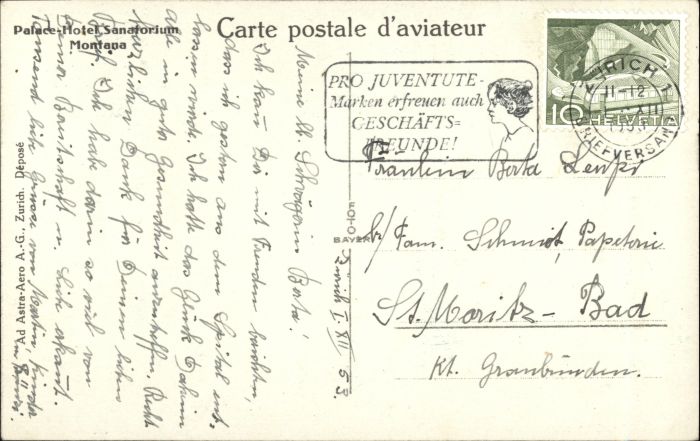 Palace-Hotel Sanatorium
Montana
Carte postale d'aviateur
PRO JUVENTUTE-
Marken erfreuen auch
GESCHÄFTS=
FREUNDE!
10
HELVETIA
ZÜRICH 1
11-12
XII
BRIEFVERSAND
Ad Astra-Aero A.-G., Zurich. Déposé
FOTO
BAYER
Zürich 1. XII 53.
Meine lb. Schwägerin Berta!
Ich kann Dir mit Freuden berichten,
dass ich gestern aus dem Spital ent-
lassen wurde. Ich hatte das Glück Daheim
alle in guter Gesundheit anzutreffen. Recht
herzlichen Dank für Deinen lieben
Brief. Ich habe darin so viel von
Deiner Bereitschaft u. Liebe erkannt.
Tausend liebe Grüsse von Martin, Kinder
Fräulein Berta
b/ Fam. Schmid, Papeterie
St. Moritz - Bad
Kt. Graubünden.